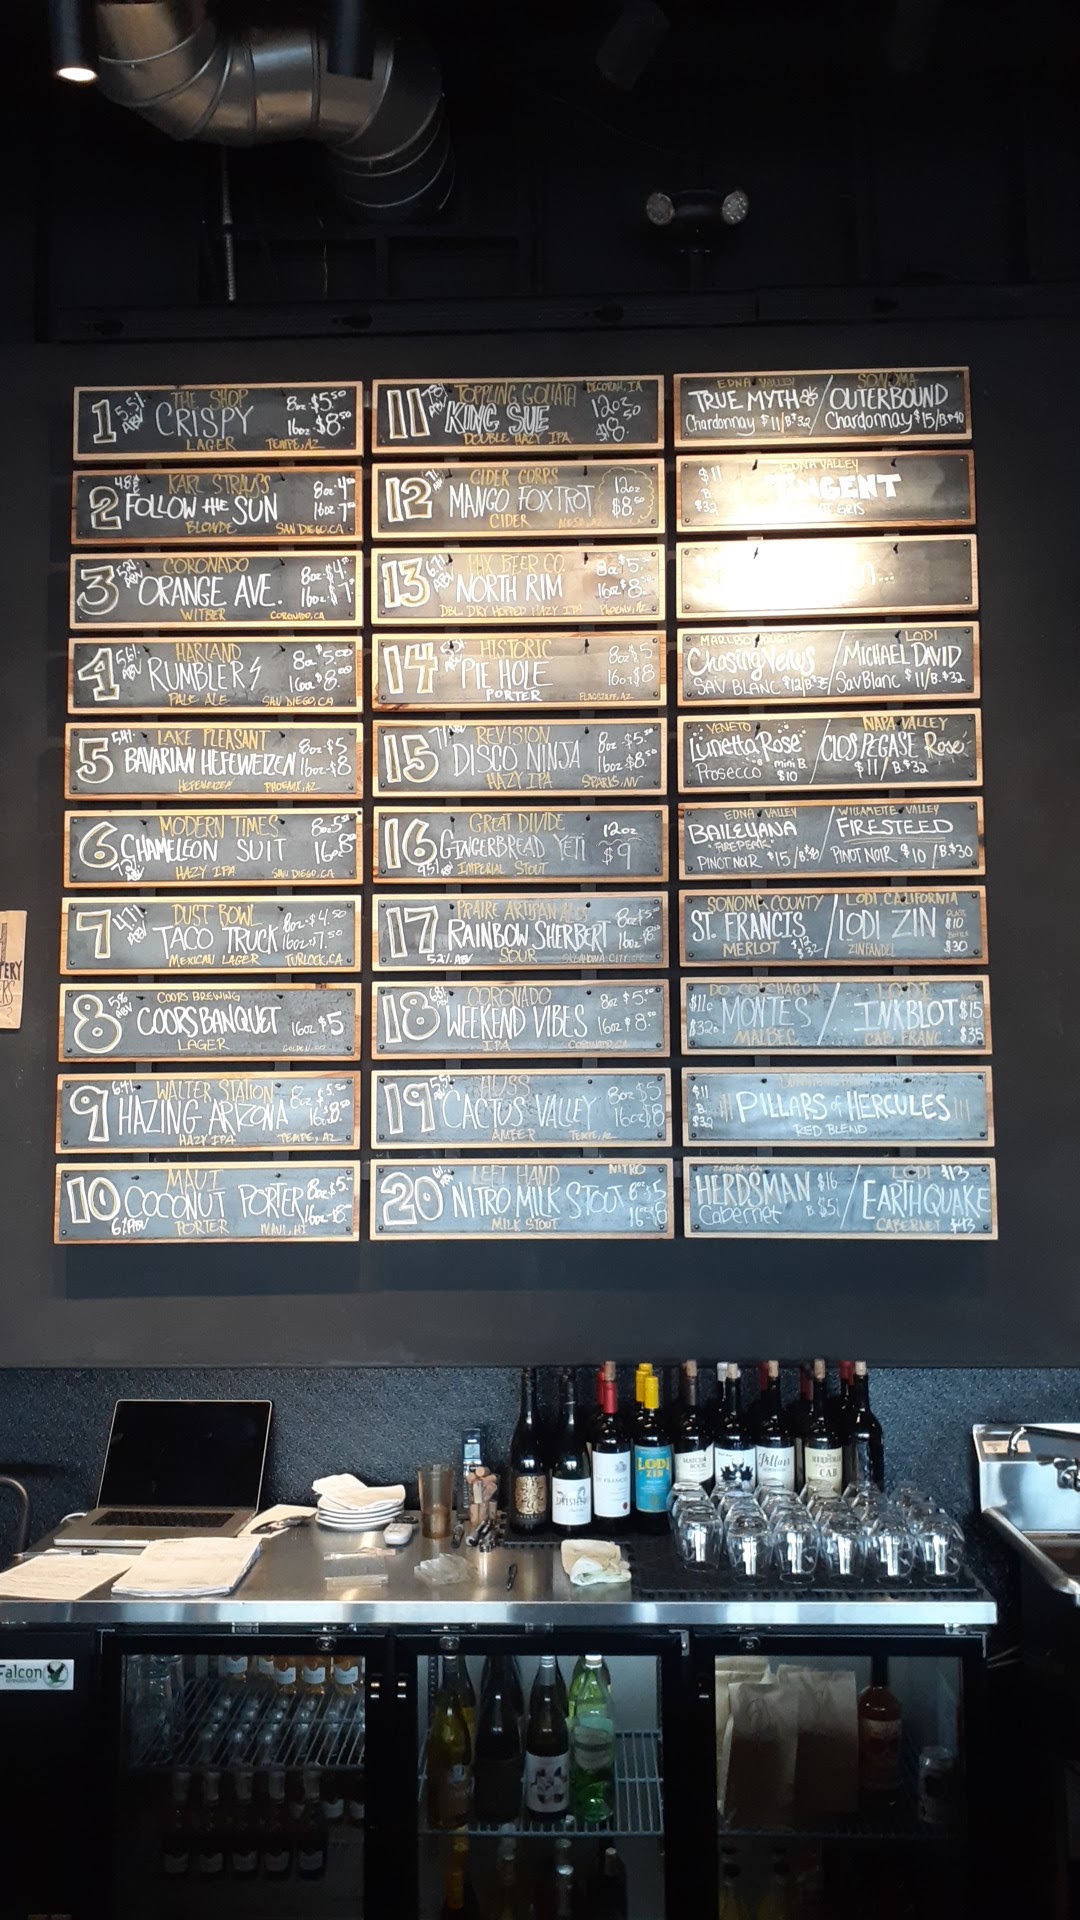 1 5.5% ABV THE SHOP 8oz $5.50
CRISPY 16oz $8.50
LAGER TEMPE, AZ
2 4.8% KARL STRAUSS
FOLLOW THE SUN
BLONDE SAN DIEGO, CA
3 5.2% ABV CORONADO
ORANGE AVE.
WITBIER CORONADO, CA
4 5.6% ABV HARLAND 8oz $5.00
RUMBLER 16oz $8.00
PALE ALE SAN DIEGO, CA
5 LAKE PLEASANT 8oz $5
BAVARIAN HEFEWEIZEN 16oz $8
HEFEWEIZEN PHOENIX, AZ
6 MODERN TIMES
CHAMELEON SUIT
HAZY IPA SAN DIEGO, CA
7 4.7% ABV DUST BOWL 8oz $4.50
TACO TRUCK 16oz $7.50
MEXICAN LAGER TURLOCK, CA
8 5% ABV COORS BREWING
COORS BANQUET 16oz $5
LAGER
9 6.4% ABV WALTER STATION
HAZING ARIZONA
HAZY IPA TEMPE, AZ
10 MAUI 8oz $5
COCONUT PORTER 16oz $8
6% ABV PORTER MAUI, HI
11 TOPPLING GOLIATH DECORAH, IA
KING SUE 12oz $8.50
DOUBLE HAZY IPA
12 CIDER CORPS 12oz
MANGO FOXTROT $8.50
CIDER
13 PHX BEER CO. 8oz $5
NORTH RIM 16oz $8
DBL DRY HOPPED HAZY IPA Phoenix, AZ
14 5.5% ABV HISTORIC 8oz $5
PIE HOLE 16oz $8
PORTER FLAGSTAFF, AZ
15 7% ABV REVISION
DISCO NINJA
HAZY IPA SPARKS, NV
16 GREAT DIVIDE 12oz
GINGERBREAD YETI $9
9.5% ABV IMPERIAL STOUT
17 PRAIRE ARTISAN ALES
RAINBOW SHERBERT
5.2% ABV SOUR OKLAHOMA CITY
18 CORONADO
WEEKEND VIBES
IPA CORONADO, CA
19 5.5% HUSS 8oz $5
CACTUS VALLEY 16oz $8
AMBER TEMPE, AZ
20 LEFT HAND NITRO
NITRO MILK STOUT
MILK STOUT
EDNA VALLEY SONOMA
TRUE MYTH / OUTERBOUND
Chardonnay $11/B.$32 Chardonnay $15/B.$40
$11 EDNA VALLEY
B. TANGENT
$32 GRIS
MARLBOROUGH LODI
Chasing Venus / MICHAEL DAVID
SAV BLANC Sav Blanc $11/B.$32
VENETO NAPA VALLEY
Lunetta Rose / CLOS PEGASE Rosé
Prosecco mini B. $10 $11/B.$32
EDNA VALLEY WILLAMETTE VALLEY
BAILEYANA / FIRESTEED
"FIREPEAK"
PINOT NOIR $15/B.$40 PINOT NOIR $10/B.$30
SONOMA COUNTY LODI, CALIFORNIA
ST. FRANCIS / LODI ZIN GLASS $10
MERLOT ZINFANDEL BOTTLE $30
DO. COLCHAGUA LODI
MONTES / INKBLOT $15
MALBEC CAB FRANC $35
$11
B. PILLARS of HERCULES
$32 RED BLEND
LODI $13
HERDSMAN $16 / EARTHQUAKE
Cabernet B. $51 CABERNET $43
LODI
ZIN
Pillars
CAB
Falcon